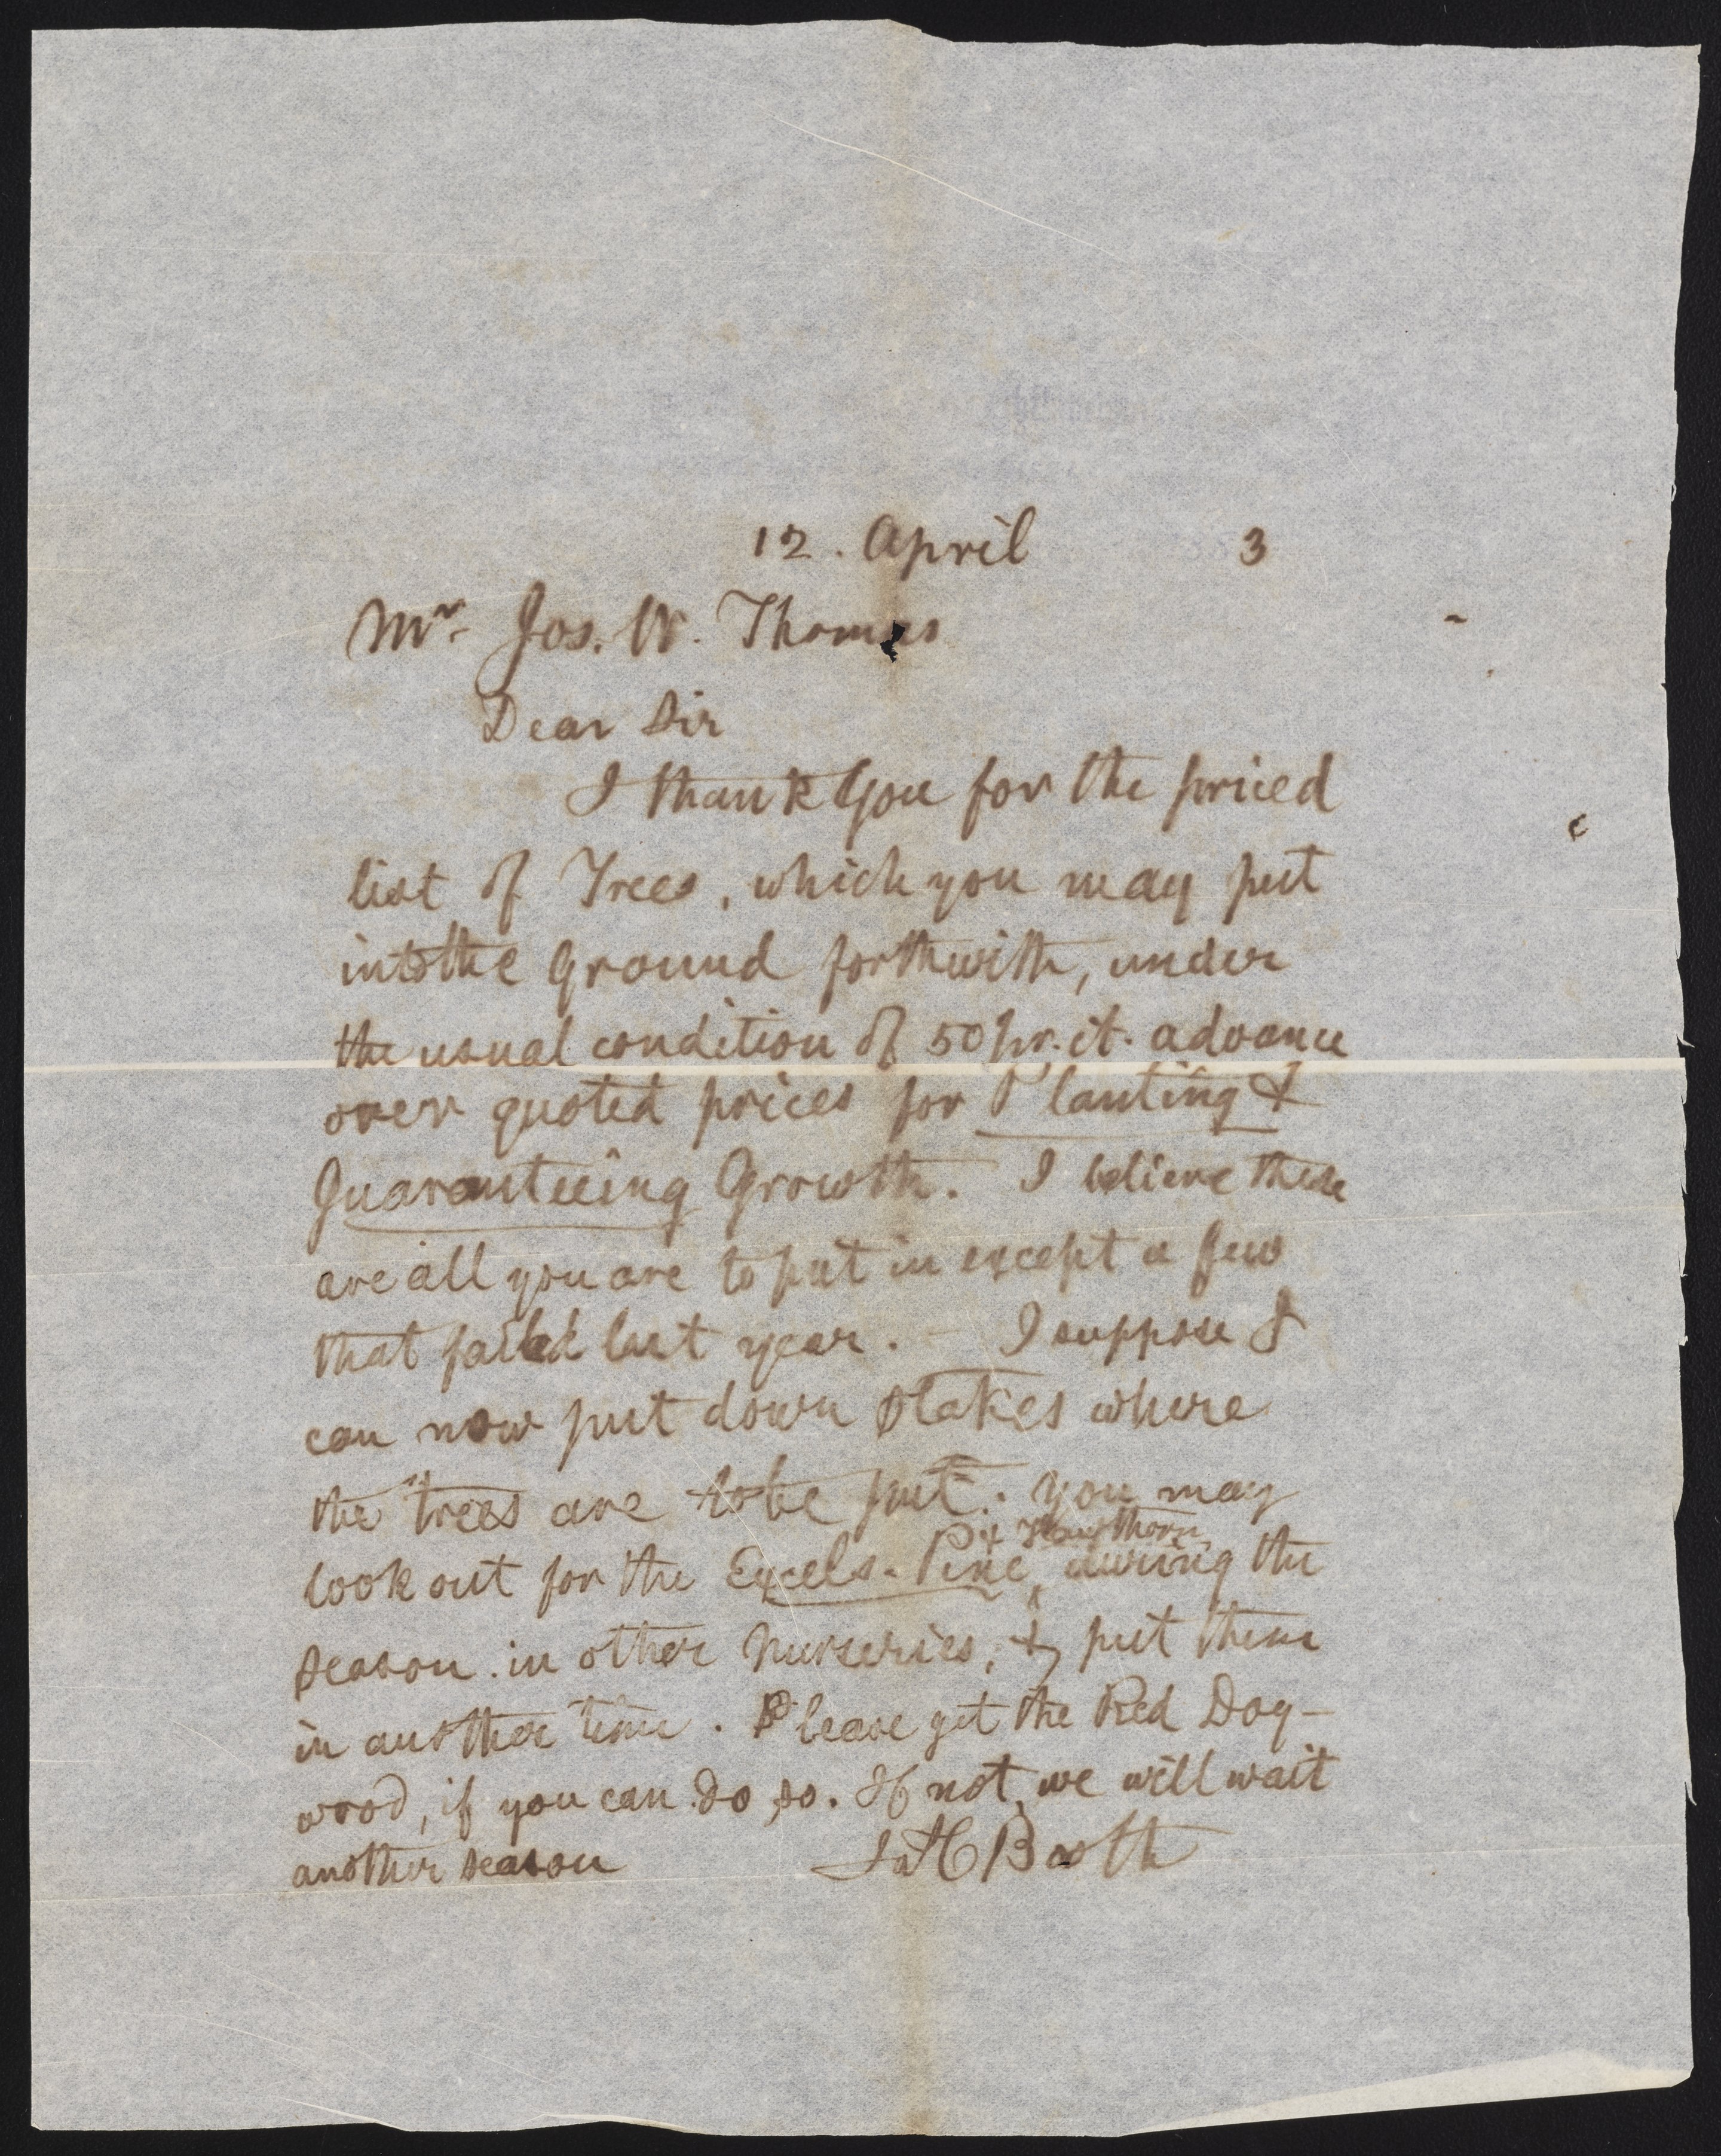 12. April 3
Mr. Jos. W. Thomas
Dear Sir
I thank you for the priced
list of Trees, which you may put
into the Ground forthwith, under
the usual condition of 50 pr. ct. advance
over quoted prices for Planting &
Guaranteeing Growth. I believe these
are all you are to put in except a few
that failed last year. — I suppose I
can now put down stakes where
the trees are to be put. You may
& Hawthorn
look out for the Excels. Pine ^ during the
season in other Nurseries, & put them
in another time. Please get the Red Dog-
wood, if you can do so. If not, we will wait
another season Jas C Booth